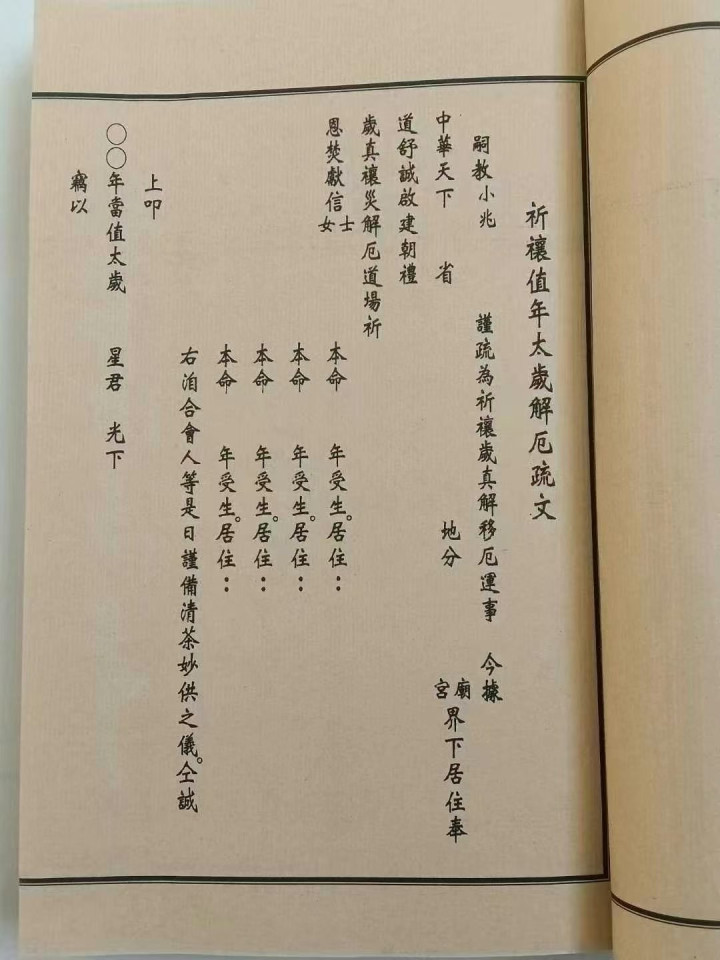 祈禳值年太歲解厄疏文
嗣教小兆 謹疏為祈禳歲真解移厄運事 今據
中華天下 省 地分 廟宮界下居住奉
道舒誠啟建朝禮
歲真禳災解厄道場祈
恩焚獻信士女 本命 年受生。居住：
本命 年受生。居住：
本命 年受生。居住：
本命 年受生。居住：
右洎合會人等是日謹備清茶妙供之儀。仝誠
上叩
〇〇年當值太歲 星君 光下
竊以